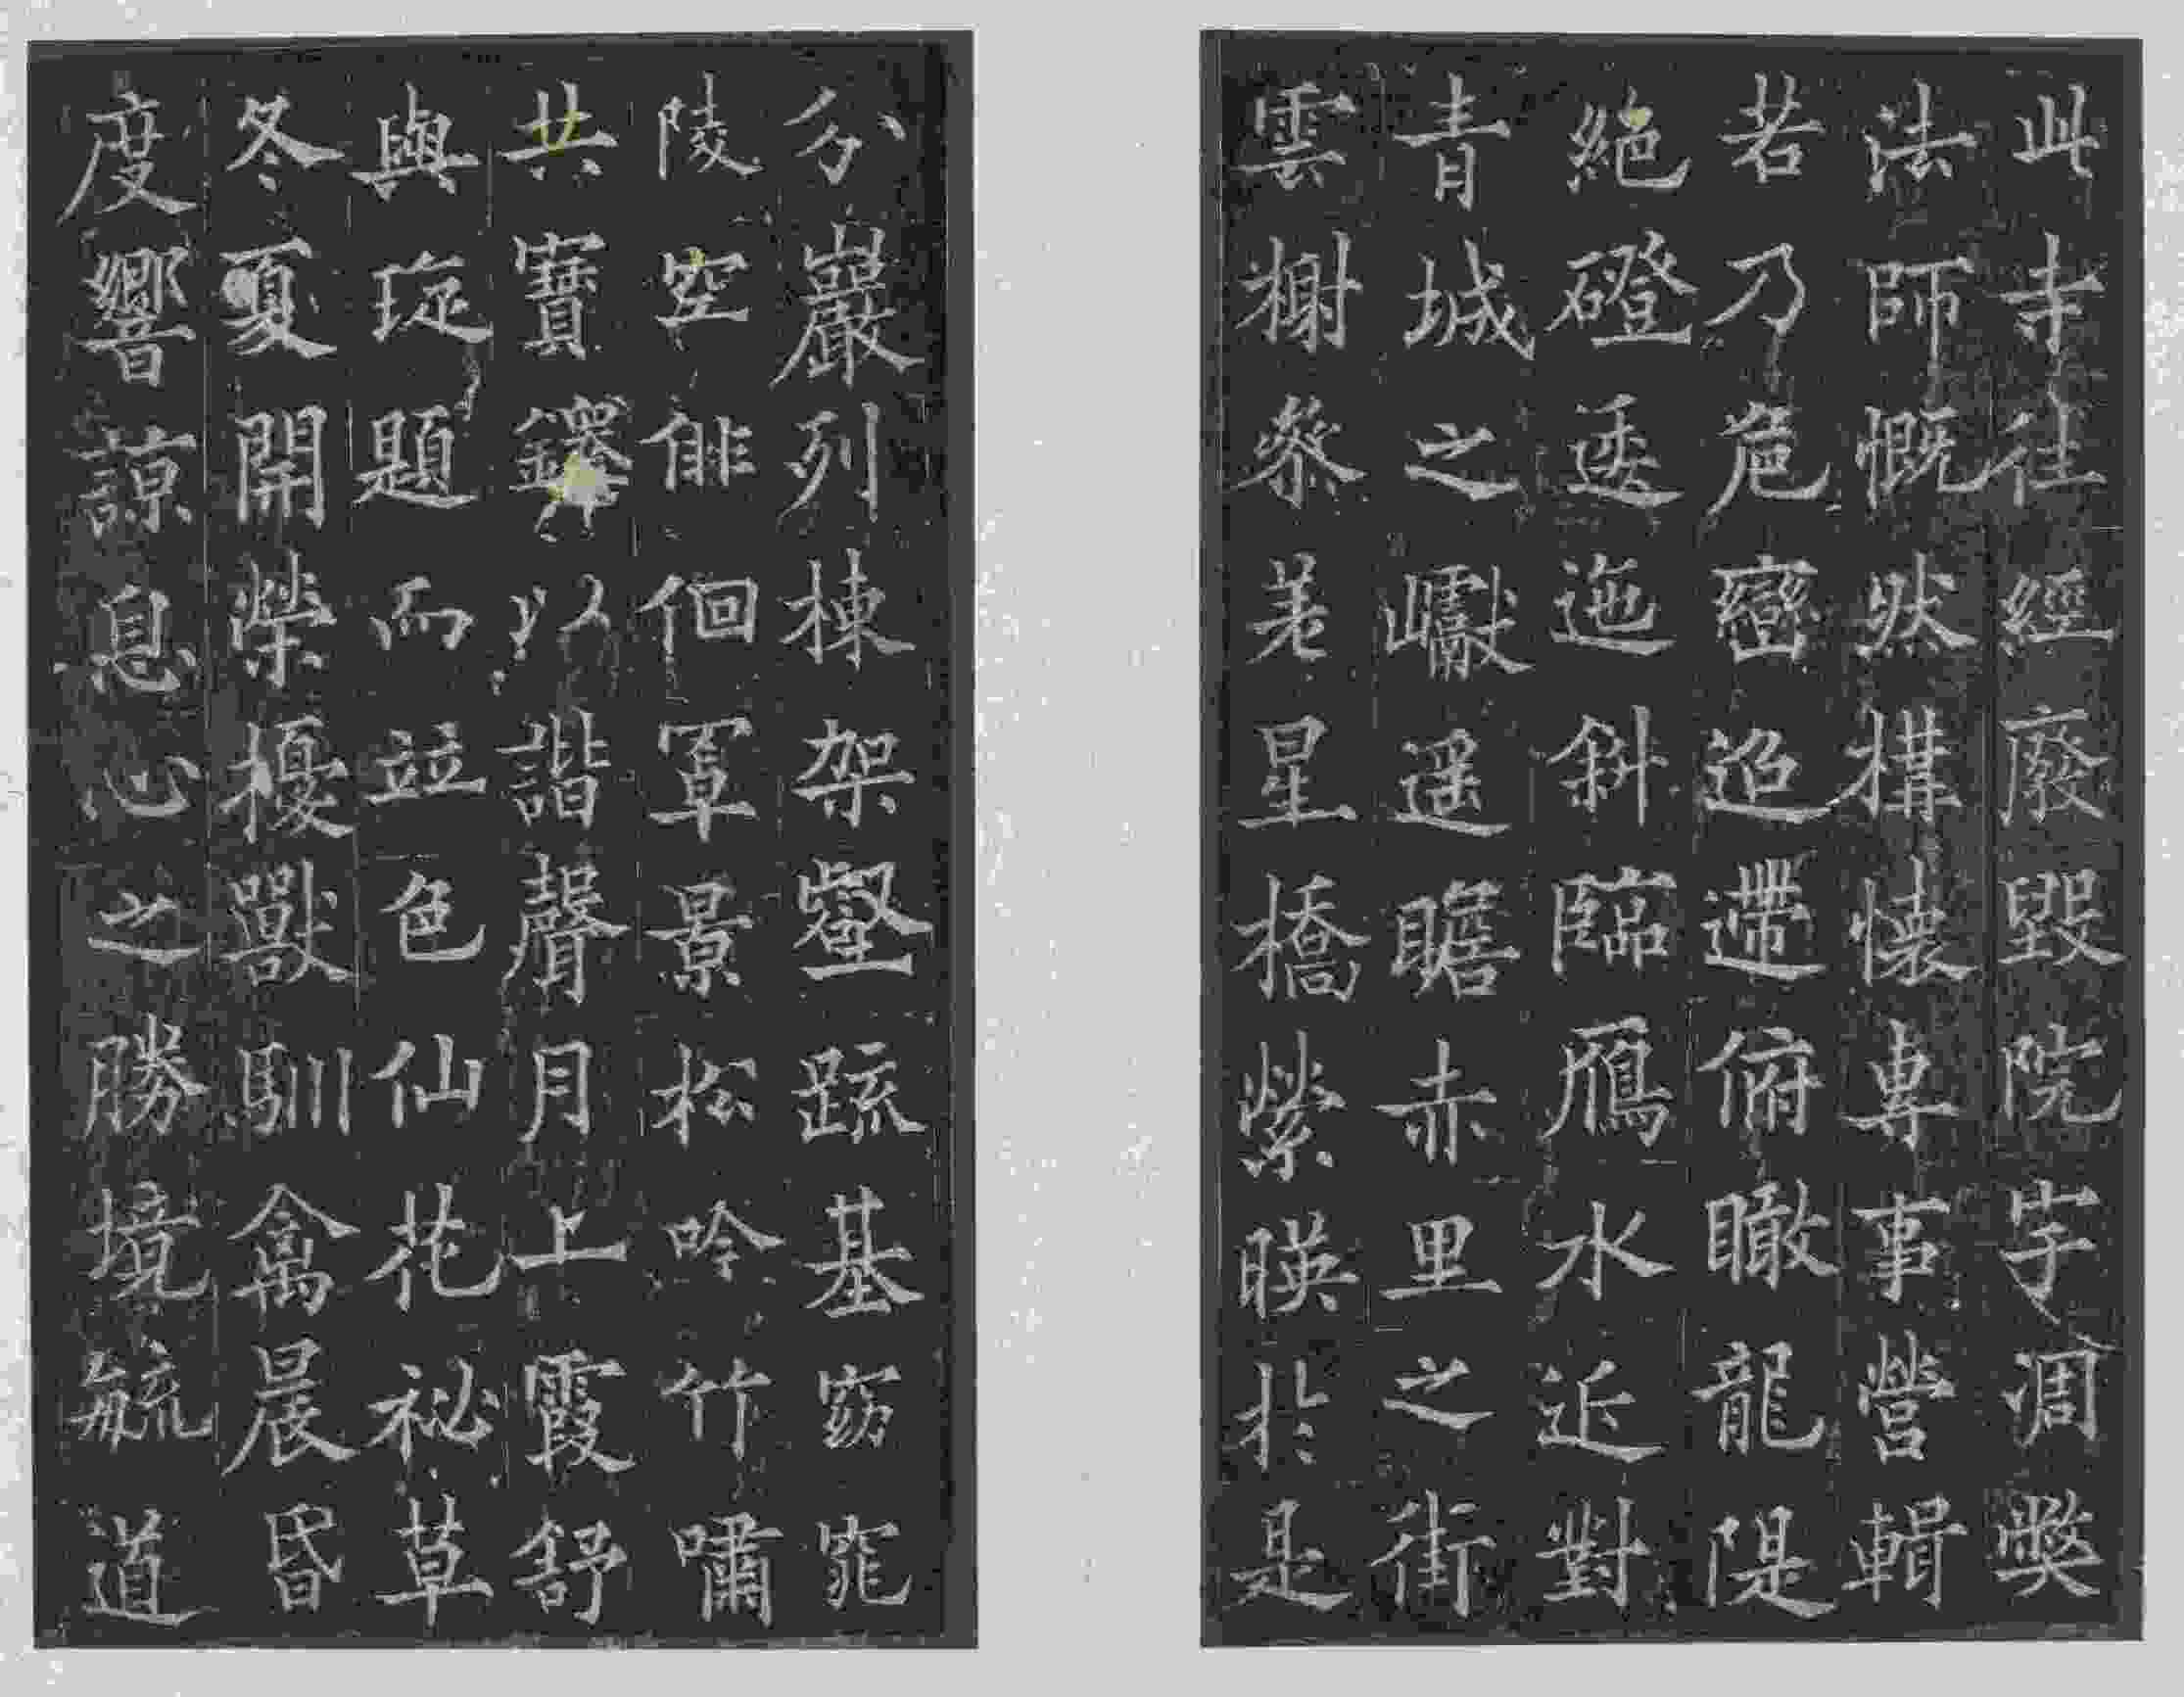 此寺往經廢毀院宇凋弊
法師慨然構懷專事營輯
若乃危巒迢遰俯瞰龍隄
絕磴逶迤斜臨鴈水近對
青城之巘遥瞻赤里之街
雲榭參差星橋縈暎於是
分巖列棟架壑疏基窈窕
陵空俳佪罩景松吟竹嘯
共寶鐸以諧聲月上霞舒
與琁題而竝色仙花祕草
冬夏開榮擾獸馴禽晨昏
度響諒息心之勝境毓道